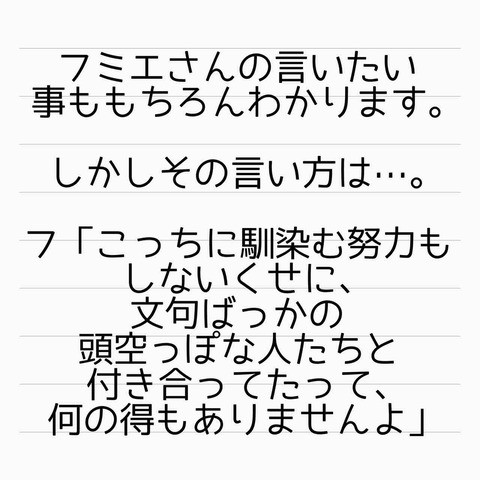 フミエさんの言いたい
事ももちろんわかります。
しかしその言い方は…。
フ「こっちに馴染む努力も
しないくせに、
文句ばっかの
頭空っぽな人たちと
付き合ってたって、
何の得もありませんよ」